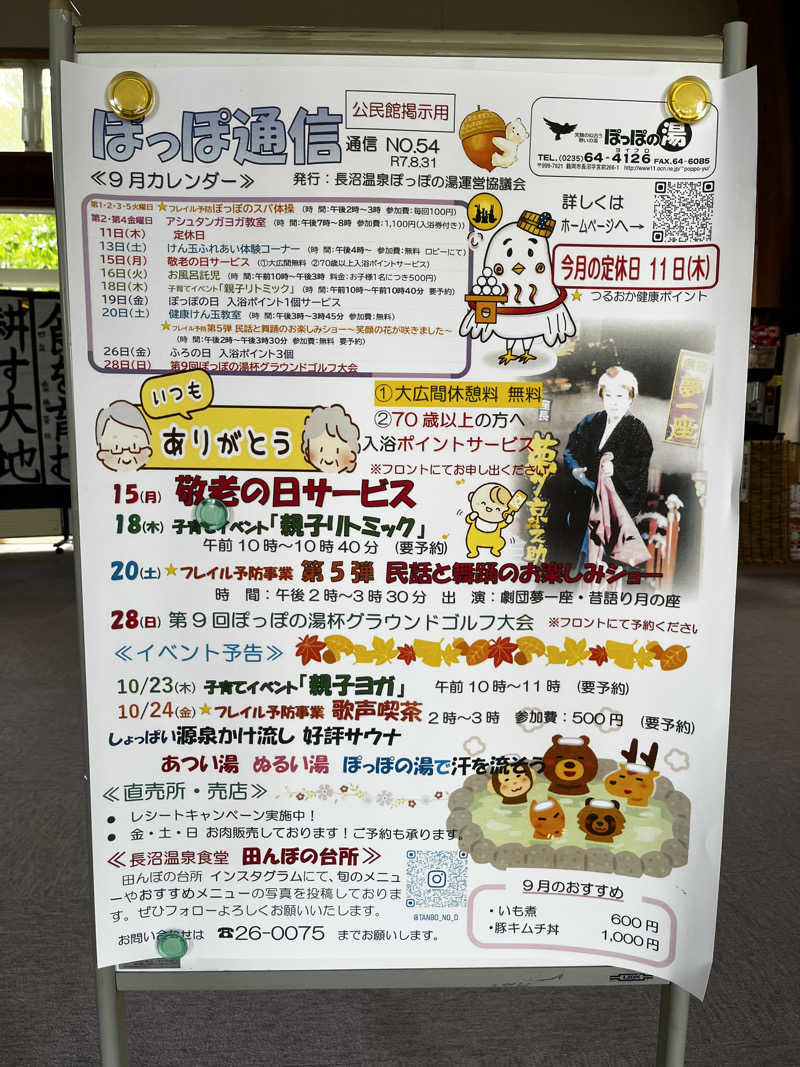 ぽっぽ通信
公民館掲示用
通信 NO.54
R7.8.31
天然の似合う
憩いの湯
ぽっぽの湯
ヨイフロ
TEL.(0235)64-4126 FAX.64-6085
≪9月カレンダー≫ 発行：長沼温泉ぽっぽの湯運営協議会
第1・2・3・5火曜日 ★フレイル予防ぽっぽのスパ体操 (時 間:午後2時～3時 参加費:毎回100円)
第2・第4金曜日 アシュタンガヨガ教室 (時 間:午後7時～8時 参加費:1,100円(入浴券付き))
11日(木) 定休日
13日(土) けん玉ふれあい体験コーナー (時 間:午後4時～ 参加費:無料 ロビーにて)
15日(月) 敬老の日サービス (①大広間無料 ②70歳以上入浴ポイントサービス)
16日(火) お風呂託児 (時 間:午前10時～午後3時 料金:お子様1名につき500円)
18日(木) 子育てイベント「親子リトミック」 (時 間:午前10時～午前10時40分 要予約)
19日(金) ぽっぽの日 入浴ポイント1個サービス
20日(土) 健康けん玉教室 (時 間:午後3時～3時45分 参加費:無料)
★フレイル予防第5弾 民話と舞踊のお楽しみショー～笑顔の花が咲きました～
(時 間:午後2時～午後3時30分 参加費:無料 要予約)
26日(金) ふろの日 入浴ポイント3個
28日(日) 第9回ぽっぽの湯杯グラウンドゴルフ大会
詳しくは
ホームページへ→
今月の定休日 11日(木)
★ つるおか健康ポイント
いつも
ありがとう
①大広間休憩料 無料
②70歳以上の方へ
入浴ポイントサービス
※フロントにてお申し出ください
夢一座
座長
15(月) 敬老の日サービス
18(木) 子育てイベント「親子リトミック」
午前10時～10時40分 (要予約)
20(土) ★フレイル予防事業 第5弾 民話と舞踊のお楽しみショー
時 間：午後2時～3時30分 出 演：劇団夢一座・昔語り月の座
28(日) 第9回ぽっぽの湯杯グラウンドゴルフ大会 ※フロントにて予約ください
≪イベント予告≫
10/23(木) 子育てイベント「親子ヨガ」 午前10時～11時 (要予約)
10/24(金) ★フレイル予防事業 歌声喫茶 2時～3時 参加費：500円 (要予約)
しょっぱい源泉かけ流し 好評サウナ
あつい湯 ぬるい湯 ぽっぽの湯で汗を流そう
≪直売所・売店≫
● レシートキャンペーン実施中！
● 金・土・日 お肉販売しております！ご予約も承ります。
≪長沼温泉食堂 田んぼの台所≫
田んぼの台所 インスタグラムにて、旬のメニュ
ーやおすすめメニューの写真を投稿しておりま
す。ぜひフォローよろしくお願いいたします。
@TANBO_NO_D
お問い合せは ☎26-0075 までお願いします。
9月のおすすめ
・いも煮 600円
・豚キムチ丼 1,000円
耕す大地